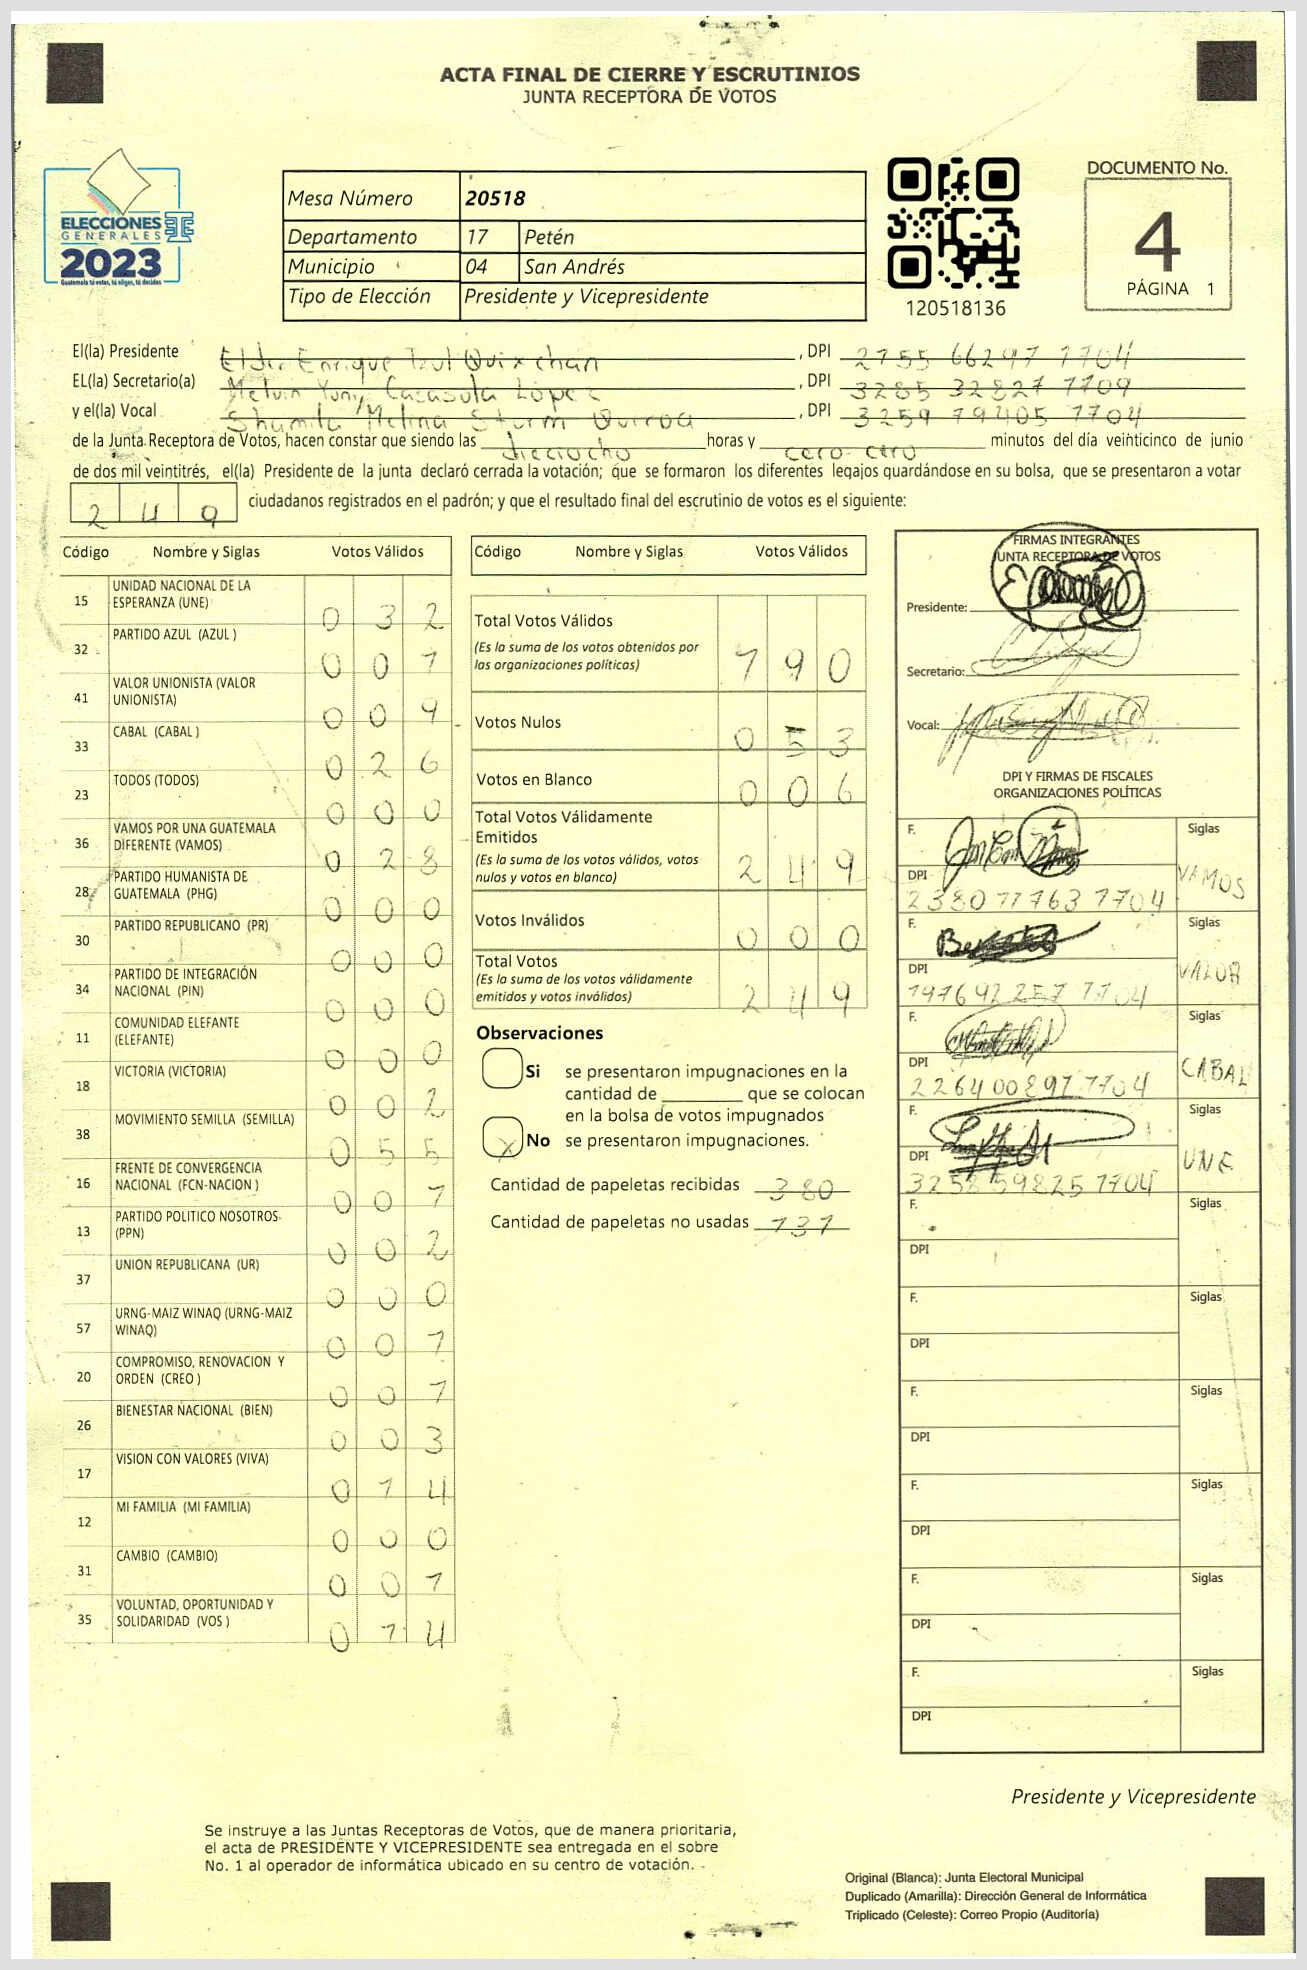 ACTA FINAL DE CIERRE Y ESCRUTINIOS
JUNTA RECEPTORA DE VOTOS
ELECCIONES
GENERALES
2023
Guatemala tú votas, tú eliges, tú decides
Mesa Número 20518
Departamento 17 Petén
Municipio 04 San Andrés
Tipo de Elección Presidente y Vicepresidente
120518136
DOCUMENTO No.
4
PÁGINA 1
El(la) Presidente Enrique Quixchan , DPI 2755 66297 1704
EL(la) Secretario(a) Melvin Yony Casasola López , DPI 3285 32827 1709
y el(la) Vocal Melina , DPI 3259 79405 1704
de la Junta Receptora de Votos, hacen constar que siendo las dieciocho horas y cero cero minutos del día veinticinco de junio
de dos mil veintitrés, el(la) Presidente de la junta declaró cerrada la votación; que se formaron los diferentes legajos guardándose en su bolsa, que se presentaron a votar
249 ciudadanos registrados en el padrón; y que el resultado final del escrutinio de votos es el siguiente:
Código Nombre y Siglas Votos Válidos
15 UNIDAD NACIONAL DE LA ESPERANZA (UNE) 032
32 PARTIDO AZUL (AZUL ) 001
41 VALOR UNIONISTA (VALOR UNIONISTA) 009
33 CABAL (CABAL ) 026
23 TODOS (TODOS) 000
36 VAMOS POR UNA GUATEMALA DIFERENTE (VAMOS) 028
28 PARTIDO HUMANISTA DE GUATEMALA (PHG) 000
30 PARTIDO REPUBLICANO (PR) 000
34 PARTIDO DE INTEGRACIÓN NACIONAL (PIN) 000
11 COMUNIDAD ELEFANTE (ELEFANTE) 000
18 VICTORIA (VICTORIA) 002
38 MOVIMIENTO SEMILLA (SEMILLA) 055
16 FRENTE DE CONVERGENCIA NACIONAL (FCN-NACION ) 001
13 PARTIDO POLITICO NOSOTROS (PPN) 002
37 UNION REPUBLICANA (UR) 000
57 URNG-MAIZ WINAQ (URNG-MAIZ WINAQ) 001
20 COMPROMISO, RENOVACION Y ORDEN (CREO ) 001
26 BIENESTAR NACIONAL (BIEN) 003
17 VISION CON VALORES (VIVA) 014
12 MI FAMILIA (MI FAMILIA) 000
31 CAMBIO (CAMBIO) 001
35 VOLUNTAD, OPORTUNIDAD Y SOLIDARIDAD (VOS ) 014
Código Nombre y Siglas Votos Válidos
Total Votos Válidos 190
(Es la suma de los votos obtenidos por
las organizaciones políticas)
Votos Nulos 053
Votos en Blanco 006
Total Votos Válidamente
Emitidos
(Es la suma de los votos válidos, votos
nulos y votos en blanco) 249
Votos Inválidos 000
Total Votos
(Es la suma de los votos válidamente
emitidos y votos inválidos) 249
Observaciones
Si se presentaron impugnaciones en la
cantidad de ________ que se colocan
en la bolsa de votos impugnados
X No se presentaron impugnaciones.
Cantidad de papeletas recibidas 380
Cantidad de papeletas no usadas 131
FIRMAS INTEGRANTES
JUNTA RECEPTORA DE VOTOS
Presidente:
Secretario:
Vocal:
DPI Y FIRMAS DE FISCALES
ORGANIZACIONES POLÍTICAS
F. Siglas
DPI VAMOS
2380 77763 1704
F. Siglas
DPI VALOR
1976 92257 1704
F. Siglas
DPI CABAL
2264 00897 1704
F. Siglas
DPI UNE
3258 59825 1704
F. Siglas
DPI
F. Siglas
DPI
F. Siglas
DPI
F. Siglas
DPI
F. Siglas
DPI
F. Siglas
DPI
Presidente y Vicepresidente
Se instruye a las Juntas Receptoras de Votos, que de manera prioritaria,
el acta de PRESIDENTE Y VICEPRESIDENTE sea entregada en el sobre
No. 1 al operador de informática ubicado en su centro de votación.
Original (Blanca): Junta Electoral Municipal
Duplicado (Amarilla): Dirección General de Informática
Triplicado (Celeste): Correo Propio (Auditoría)